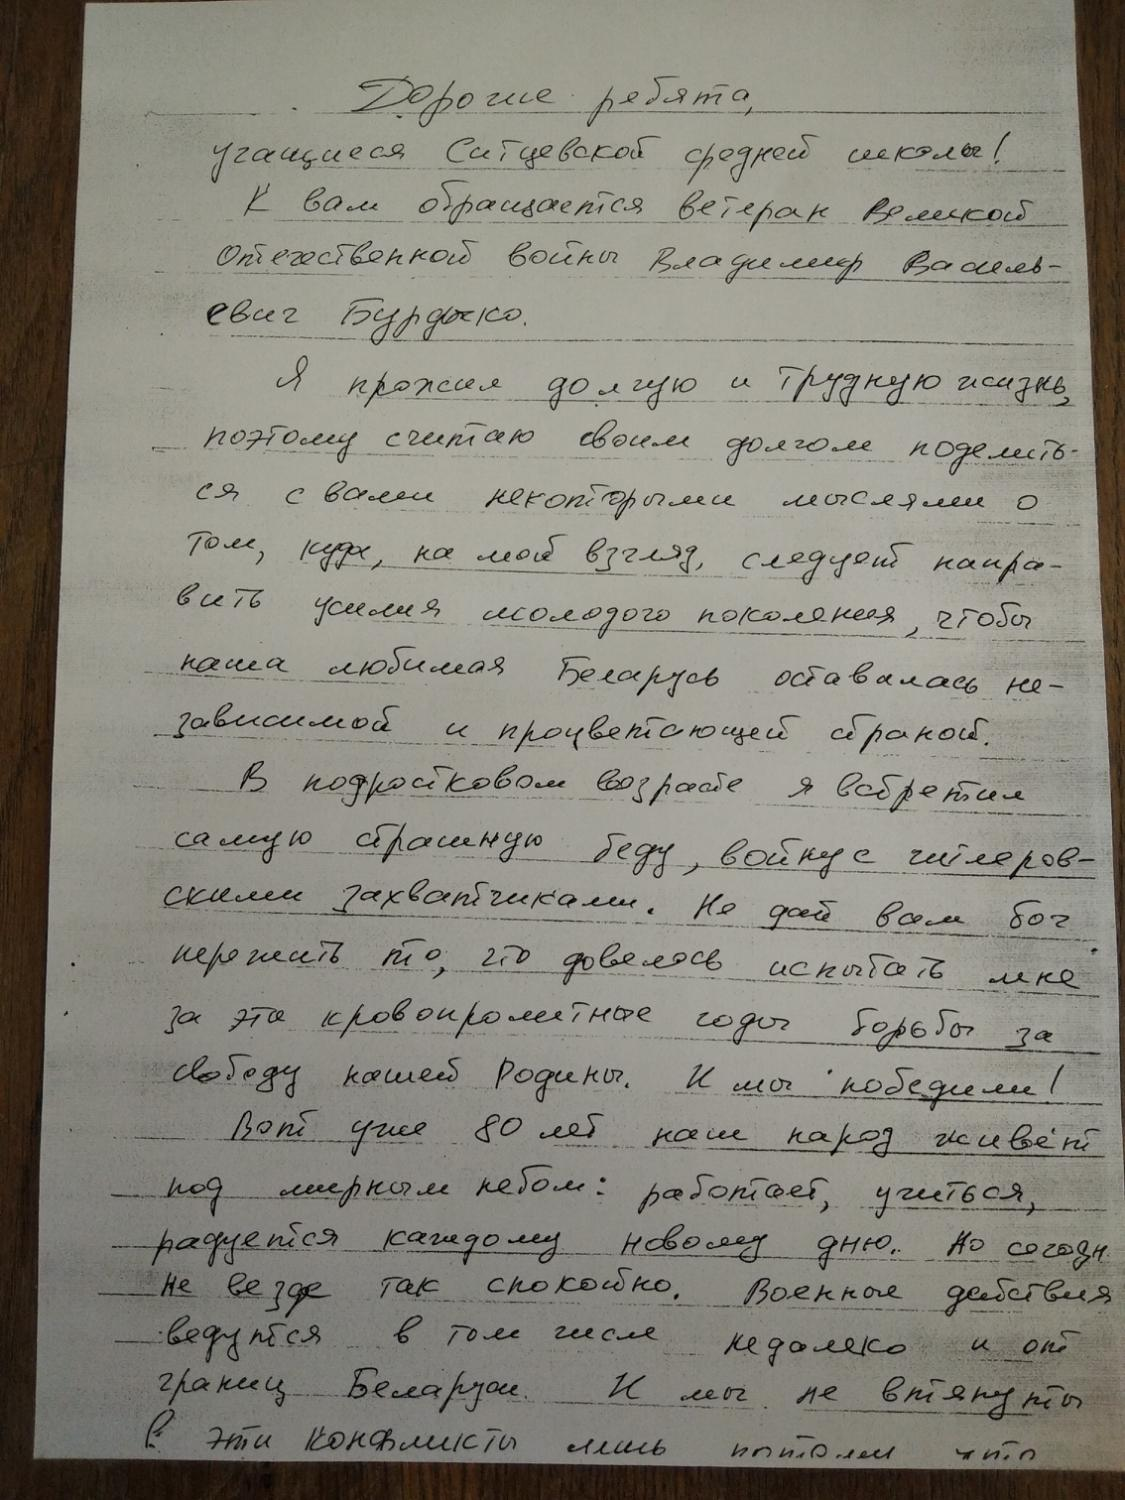 Дорогие ребята,
учащиеся Ситцевской средней школы!
К вам обращается ветеран Великой
Отечественной войны Владимир Василь-
евич Бурдыко.
Я прожил долгую и трудную жизнь,
поэтому считаю своим долгом поделить-
ся с вами некоторыми мыслями о
том, куда, на мой взгляд, следует напра-
вить усилия молодого поколения, чтобы
наша любимая Беларусь оставалась не-
зависимой и процветающей страной.
В подростковом возрасте я встретил
самую страшную беду, войну с гитлеров-
скими захватчиками. Не дай вам бог
пережить то, что довелось испытать мне
за эти кровопролитные годы борьбы за
свободу нашей Родины. И мы победили!
Вот уже 80 лет наш народ живёт
под мирным небом: работает, учиться,
радуется каждому новому дню. Но сегодн
не везде так спокойно. Военные действия
ведутся в том числе недалеко и от
границ Беларуси. И мы не втянуты
в эти конфликты лишь потому что